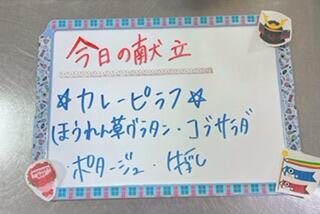 今日の献立
☆カレーピラフ☆
ほうれん草グラタン・コブサラダ
・ポタージュ・